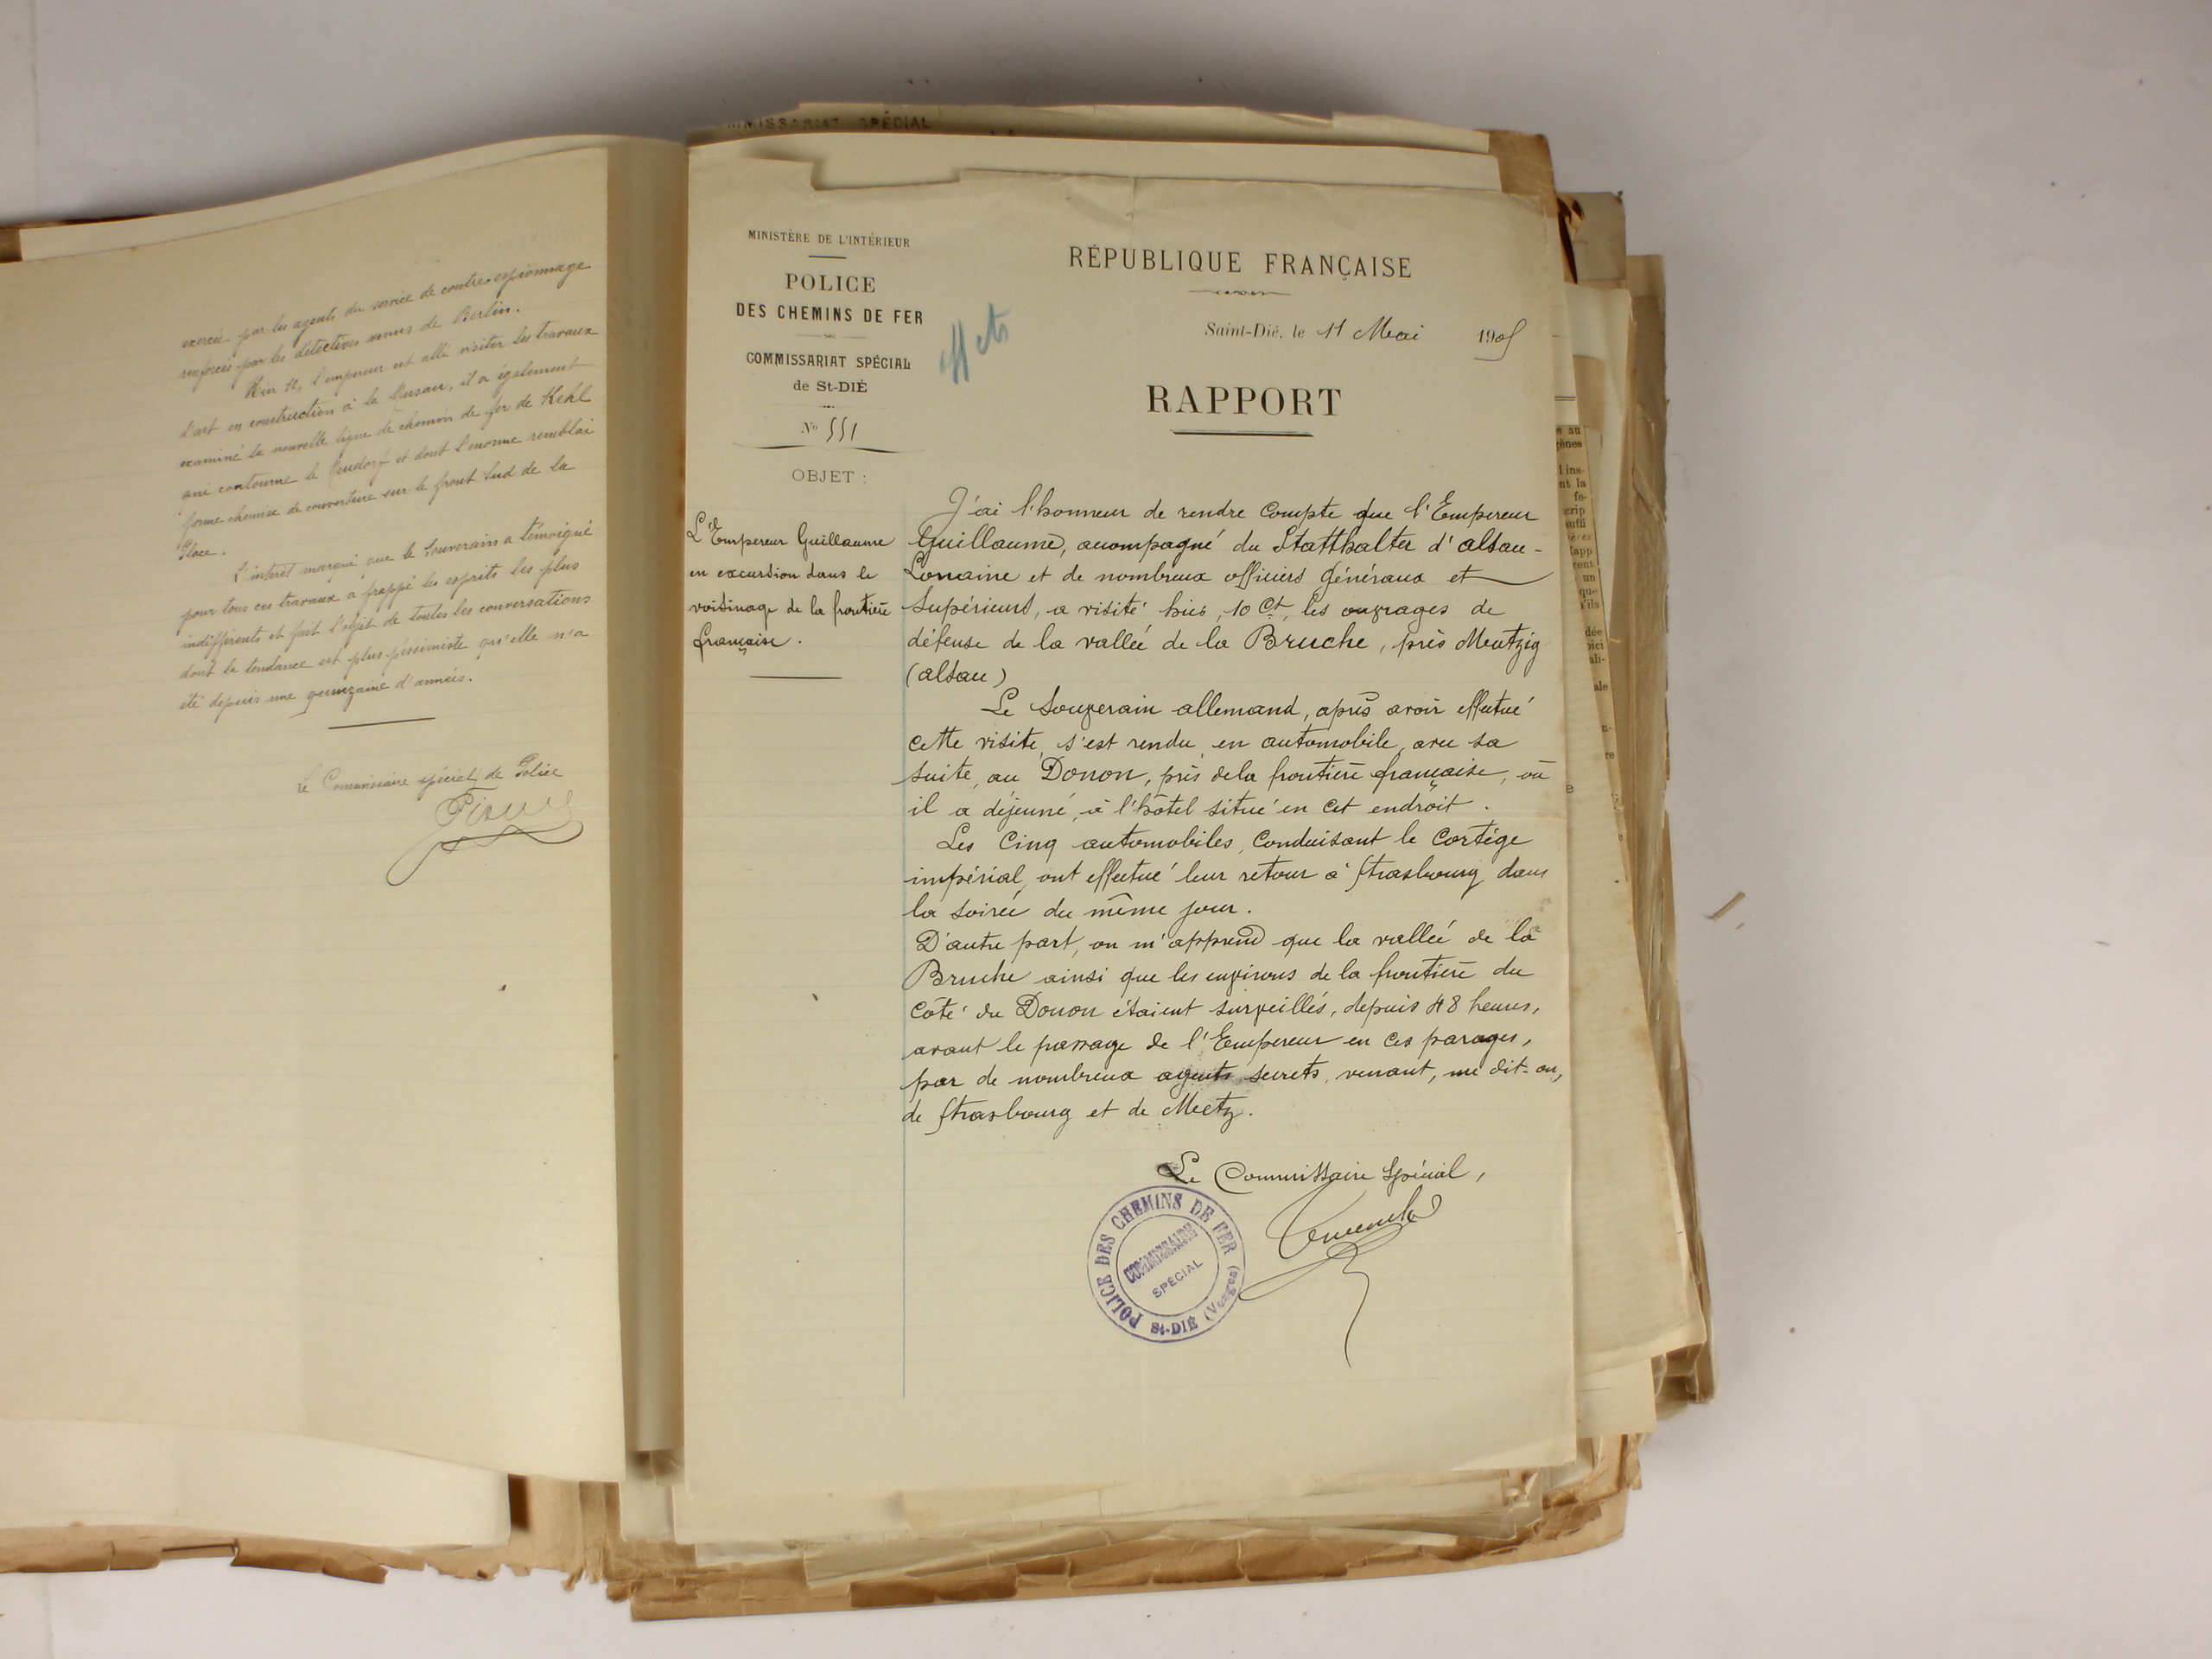 exercée par les agents du service de contre-espionnage
renforcés par les détectives venus de Berlin.
Hier 11, l'empereur est allé visiter les travaux
d'art en construction à la Musau, il a également
examiné la nouvelle ligne de chemin de fer de Kehl
qui contourne le Neudorf et dont l'énorme remblai
forme chemise de couverture sur le front Sud de la
Place.
L'intérêt marqué que le Souverain a témoigné
pour tous ces travaux a frappé les esprits les plus
indifférents et fait l'objet de toutes les conversations
dont la tendance est plus pessimiste qu'elle n'a
été depuis une quinzaine d'années.
Le Commissaire spécial de Police
MMISSARIAT SPÉCIAL
MINISTÈRE DE L'INTÉRIEUR
POLICE
DES CHEMINS DE FER
COMMISSARIAT SPÉCIAL
de St-DIÉ
No 551
OBJET :
L'Empereur Guillaume
en excursion dans le
voisinage de la frontière
française.
RÉPUBLIQUE FRANÇAISE
Saint-Dié, le 11 Mai 1908
RAPPORT
J'ai l'honneur de rendre compte que l'Empereur
Guillaume, accompagné du Statthalter d'alsace-
Lorraine et de nombreux officiers généraux et
Supérieurs, a visité hier, 10 Ct, les ouvrages de
défense de la vallée de la Bruche, près Mutzig
(alsace)
Le Souverain allemand, après avoir effectué
cette visite, s'est rendu, en automobile, avec sa
suite, au Donon, près de la frontière française, où
il a déjeuné, à l'hôtel situé en cet endroit.
Les cinq automobiles, conduisant le cortège
impérial, ont effectué leur retour à Strasbourg dans
la soirée du même jour.
D'autre part, on m'apprend que la vallée de la
Bruche ainsi que les environs de la frontière du
côté du Donon étaient surveillés, depuis 48 heures,
avant le passage de l'Empereur en ces parages,
par de nombreux agents secrets, venant, me dit-on,
de Strasbourg et de Metz.
Le Commissaire Spécial,
POLICE DES CHEMINS DE FER
COMMISSAIRE
SPÉCIAL
St-DIÉ (Vosges)